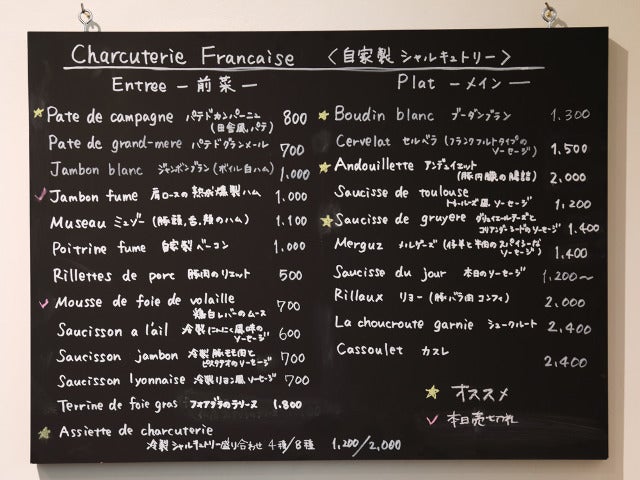 Charcuterie Francaise 〈自家製 シャルキュトリー〉
Entree - 前菜 -
Pate de campagne パテドカンパーニュ 800
(田舎風パテ)
Pate de grand-mere パテドグランメール 700
Jambon blanc ジャンボンブラン (ボイル白ハム) 1,000
Jambon fume 肩ロースの熱燻製ハム 1,000
Museau ミュゾー (豚頭、舌、頬のハム) 1,100
Poitrine fume 自家製ベーコン 1,000
Rillettes de porc 豚肉のリエット 500
Mousse de foie de volaille 700
鶏白レバーのムース
Saucisson a l'ail 冷製にんにく風味の 600
ソーセージ
Saucisson jambon 冷製豚モモ肉と 700
ピスタチオのソーセージ
Saucisson lyonnaise 冷製リヨン風ソーセージ 700
Terrine de foie gras フォアグラのテリーヌ 1,800
Assiette de charcuterie
冷製シャルキュトリー盛り合わせ 4種/8種 1,200/2,000
Plat - メイン -
Boudin blanc ブーダンブラン 1,300
Cervelat セルベラ (フランクフルトタイプの 1,500
ソーセージ)
Andouillette アンデュイエット 2,000
(豚内臓の腸詰)
Saucisse de toulouse 1,200
トゥールーズ風ソーセージ
Saucisse de gruyere グリュイエールチーズと 1,400
コリアンダーシードのソーセージ
Merguz メルゲーズ (仔羊と牛肉のスパイシーな 1,400
ソーセージ)
Saucisse du jour 本日のソーセージ 1,200〜
Rillaux リヨー (豚バラ肉コンフィ) 2,000
La choucroute garnie シュークルート 2,400
Cassoulet カスレ 2,400
オススメ
本日売せつれ